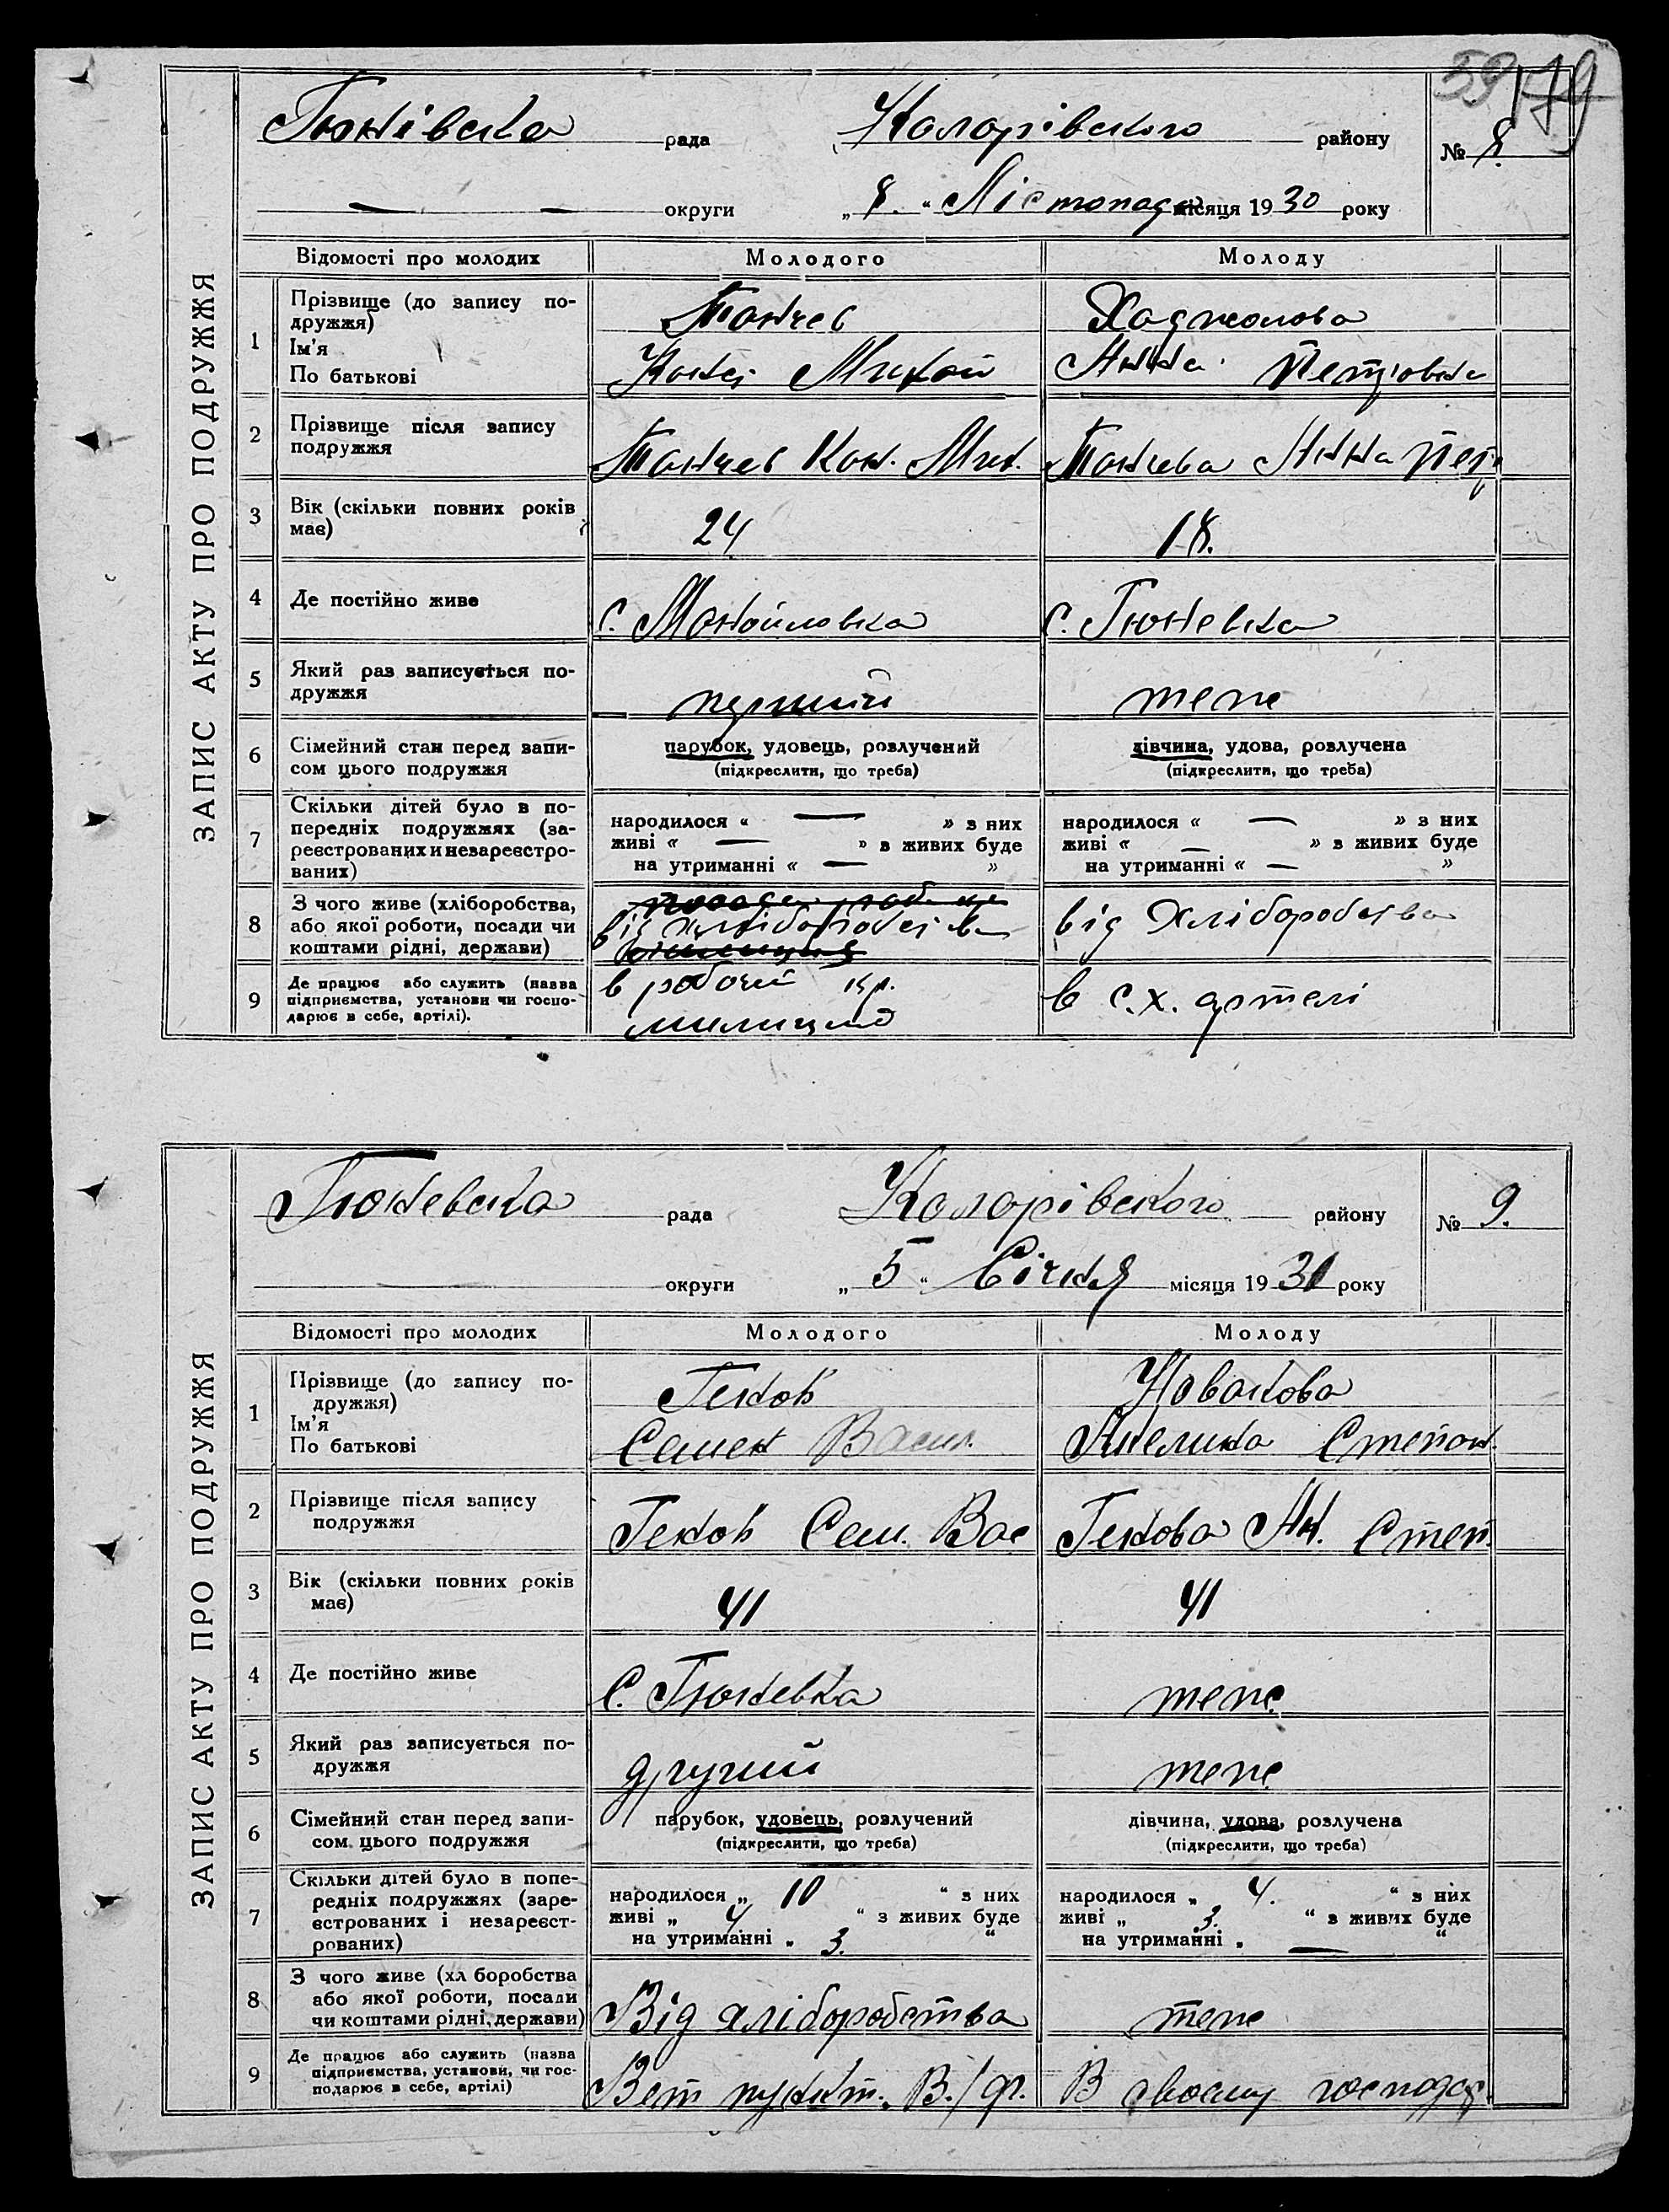 59 179
ЗАПИС АКТУ ПРО ПОДРУЖЖЯ
Гюнівска рада Коларівского району № 8.
— — округи „ 8. “ Лістопада місяця 1930 року
Відомості про молодих Молодого Молоду
1 Прізвище (до запису по-
дружжя)
Ім'я
По батькові
Танчев Хаджиолова
Микол Анна Петровна
2 Прізвище після запису
подружжя
Танчев Кон. Мик. Танчева Анна Пет
3 Вік (скільки повних років
має)
24 18.
4 Де постійно живе с. Манойловка с. Гюневка
5 Який раз записується по-
дружжя
перший теж
6 Сімейний стан перед запи-
сом цього подружжя
парубок, удовець, розлучений дівчина, удова, розлучена
(підкреслити, що треба) (підкреслити, що треба)
7 Скільки дітей було в по-
передніх подружжях (за-
реєстрованих и незареєстро-
ваних)
народилося “ — » з них народилося « — » з них
живі “ — » в живих буде живі “ — » в живих буде
на утриманні « — » на утриманні “ — »
8 З чого живе (хліборобства,
або якої роботи, посади чи
коштами рідні, держави)
від хліборобства від Хліборобства
9 Де працює або служить (назва
підприємства, установи чи госпо-
дарює в себе, артілі).
в робочий кр. в с.х. артелі
милиции
ЗАПИС АКТУ ПРО ПОДРУЖЖЯ
Гюневска рада Коларівского району № 9.
округи „ 5 “ Січня місяця 1931 року
Відомості про молодих Молодого Молоду
1 Прізвище (до запису по-
дружжя)
Ім'я
По батькові
Генов Новакова
Семен Васил. Анелика Степан.
2 Прізвище після запису
подружжя
Генов Сем. Вас Генова Ан. Степ.
3 Вік (скільки повних років
має)
41 41
4 Де постійно живе С. Гюневка теж
5 Який раз записується по-
дружжя
другий теж
6 Сімейний стан перед запи-
сом цього подружжя
парубок, удовець, розлучений дівчина, удова, розлучена
(підкреслити, що треба) (підкреслити, що треба)
7 Скільки дітей було в попе-
редніх подружжях (заре-
єстрованих і незареєст-
рованих)
народилося „ 10 “ з них народилося „ 4. “ з них
живі „ 4 “ з живих буде живі „ 3. “ в живих буде
на утриманні „ 3. “ на утриманні „ — “
8 З чого живе (хл боробства
або якої роботи, посади
чи коштами рідні, держави)
Від хліборобства теж
9 Де працює або служить (назва
підприємства, установи, чи гос-
подарює в себе, артілі)
Вет пункт. В своему господар.